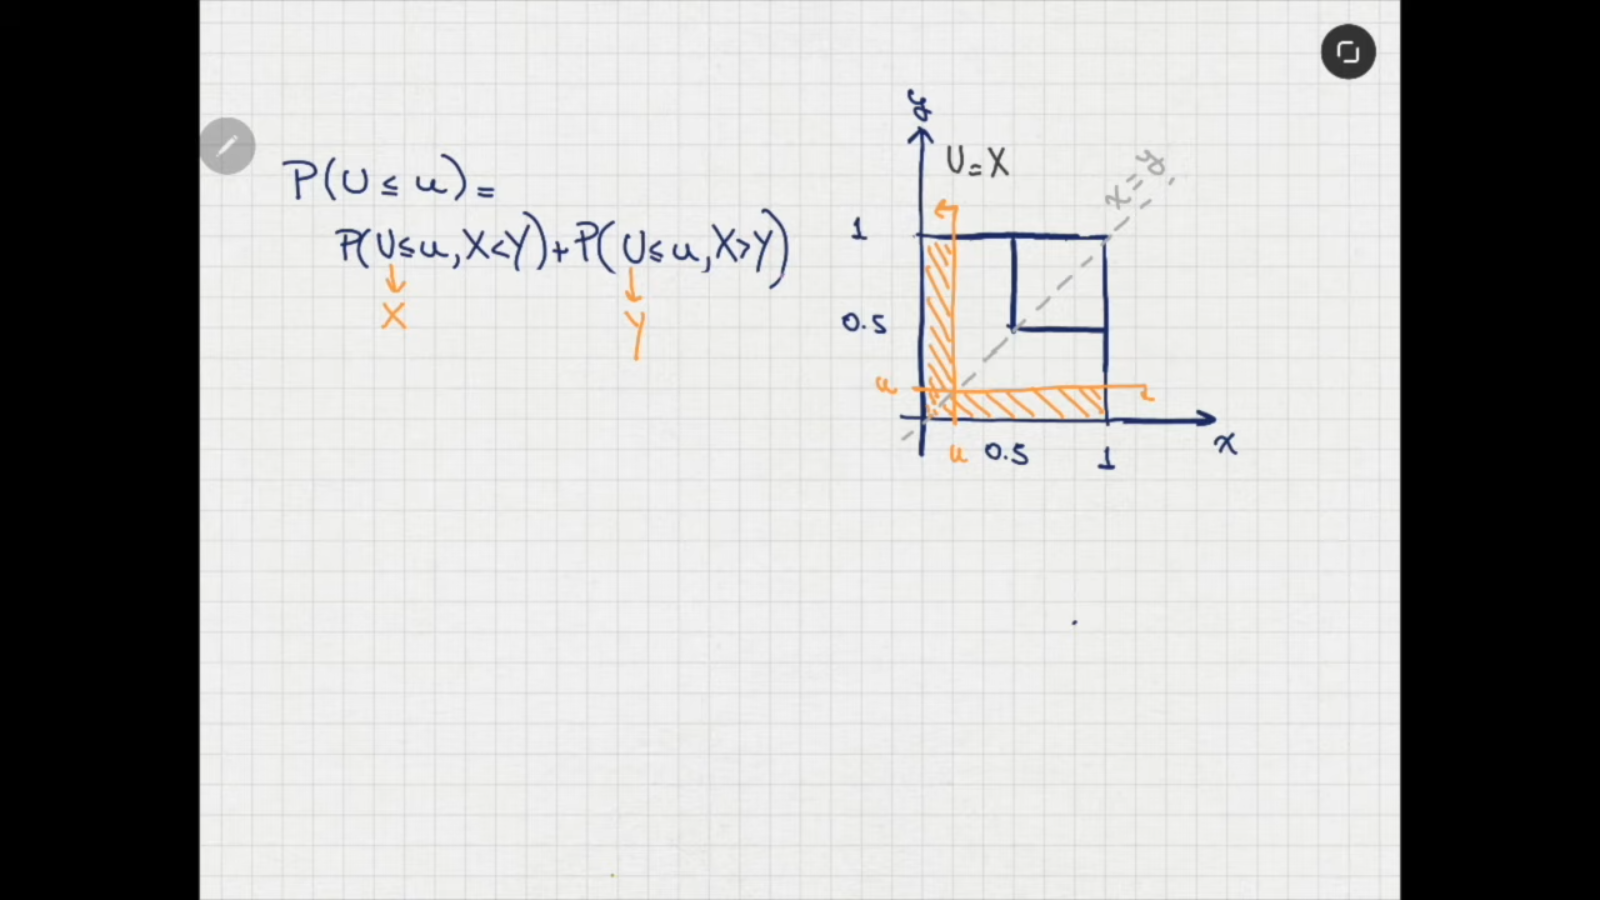 P(U ≤ u) =
P(U ≤ u, X < Y) + P(U ≤ u, X > Y)
X
Y
y
U = X
X = y
1
0.5
u
u
0.5
1
x